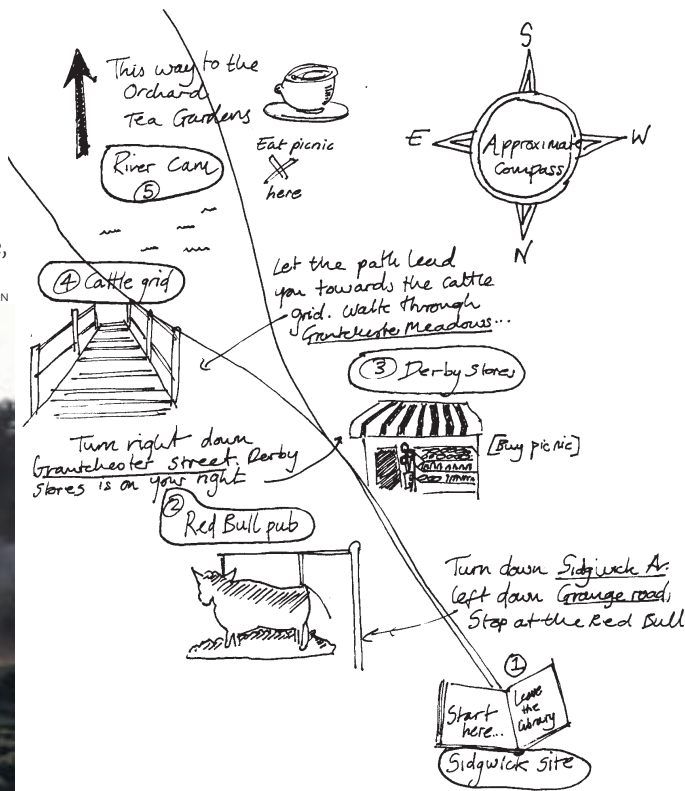 This way to the
Orchard
Tea Gardens
Eat picnic
here
River Cam
5
S
E
W
N
Approximate
Compass
4 Cattle grid
Let the path lead
you towards the cattle
grid. Walk through
Grantchester Meadows...
3 Derby Stores
[Buy picnic]
Turn right down
Grantchester street. Derby
Stores is on your right
2
Red Bull pub
Turn down Sidgwick Av.
left down Grange road,
Stop at the Red Bull
1
Start
here...
Leave
the
library
Sidgwick Site